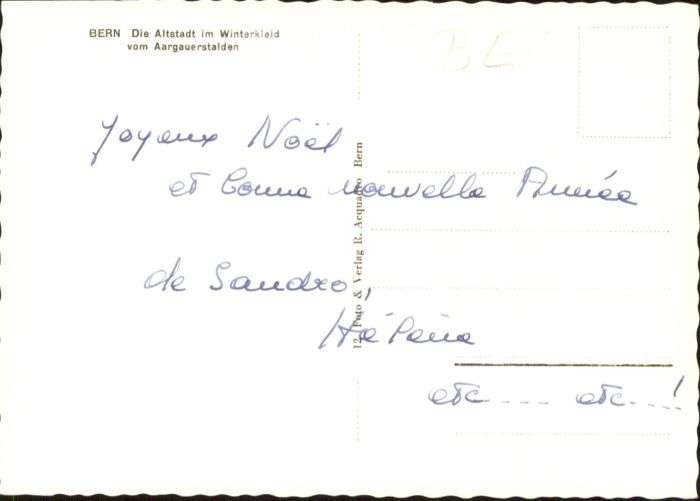 BERN Die Altstadt im Winterkleid
vom Aargauerstalden
BL
Joyeux Noël
et bonne nouvelle Année
de Sandro,
Hélène
etc.... etc....!
12 Foto & Verlag R. Acquadro Bern